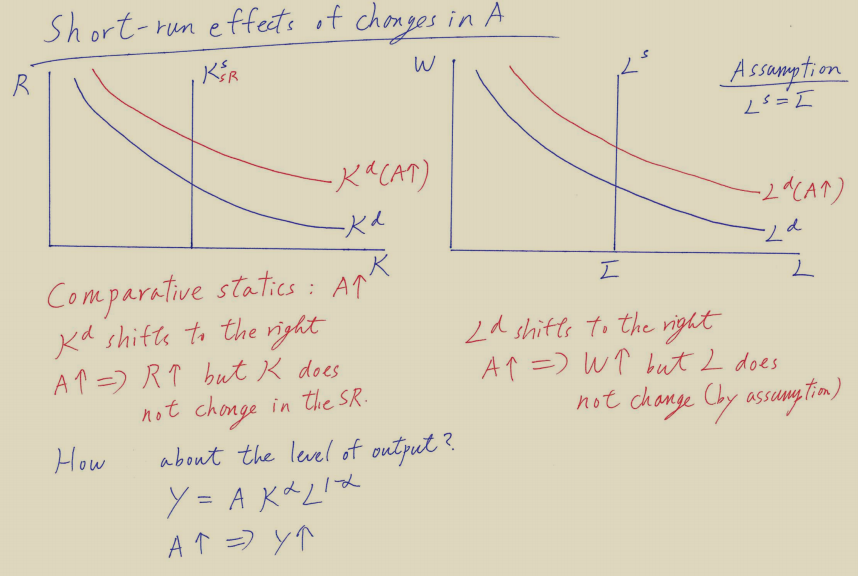 Short-run effects of changes in A
R
K^s_SR
K^d(A↑)
K^d
K
W
L^s
L^d(A↑)
L^d
L̅
L
Assumption
L^s = L̅
Comparative statics : A↑
K^d shifts to the right
A↑ ⇒ R↑ but K does
not change in the SR.
L^d shifts to the right
A↑ ⇒ W↑ but L does
not change (by assumption)
How about the level of output?
Y = A K^α L^1-α
A↑ ⇒ Y↑